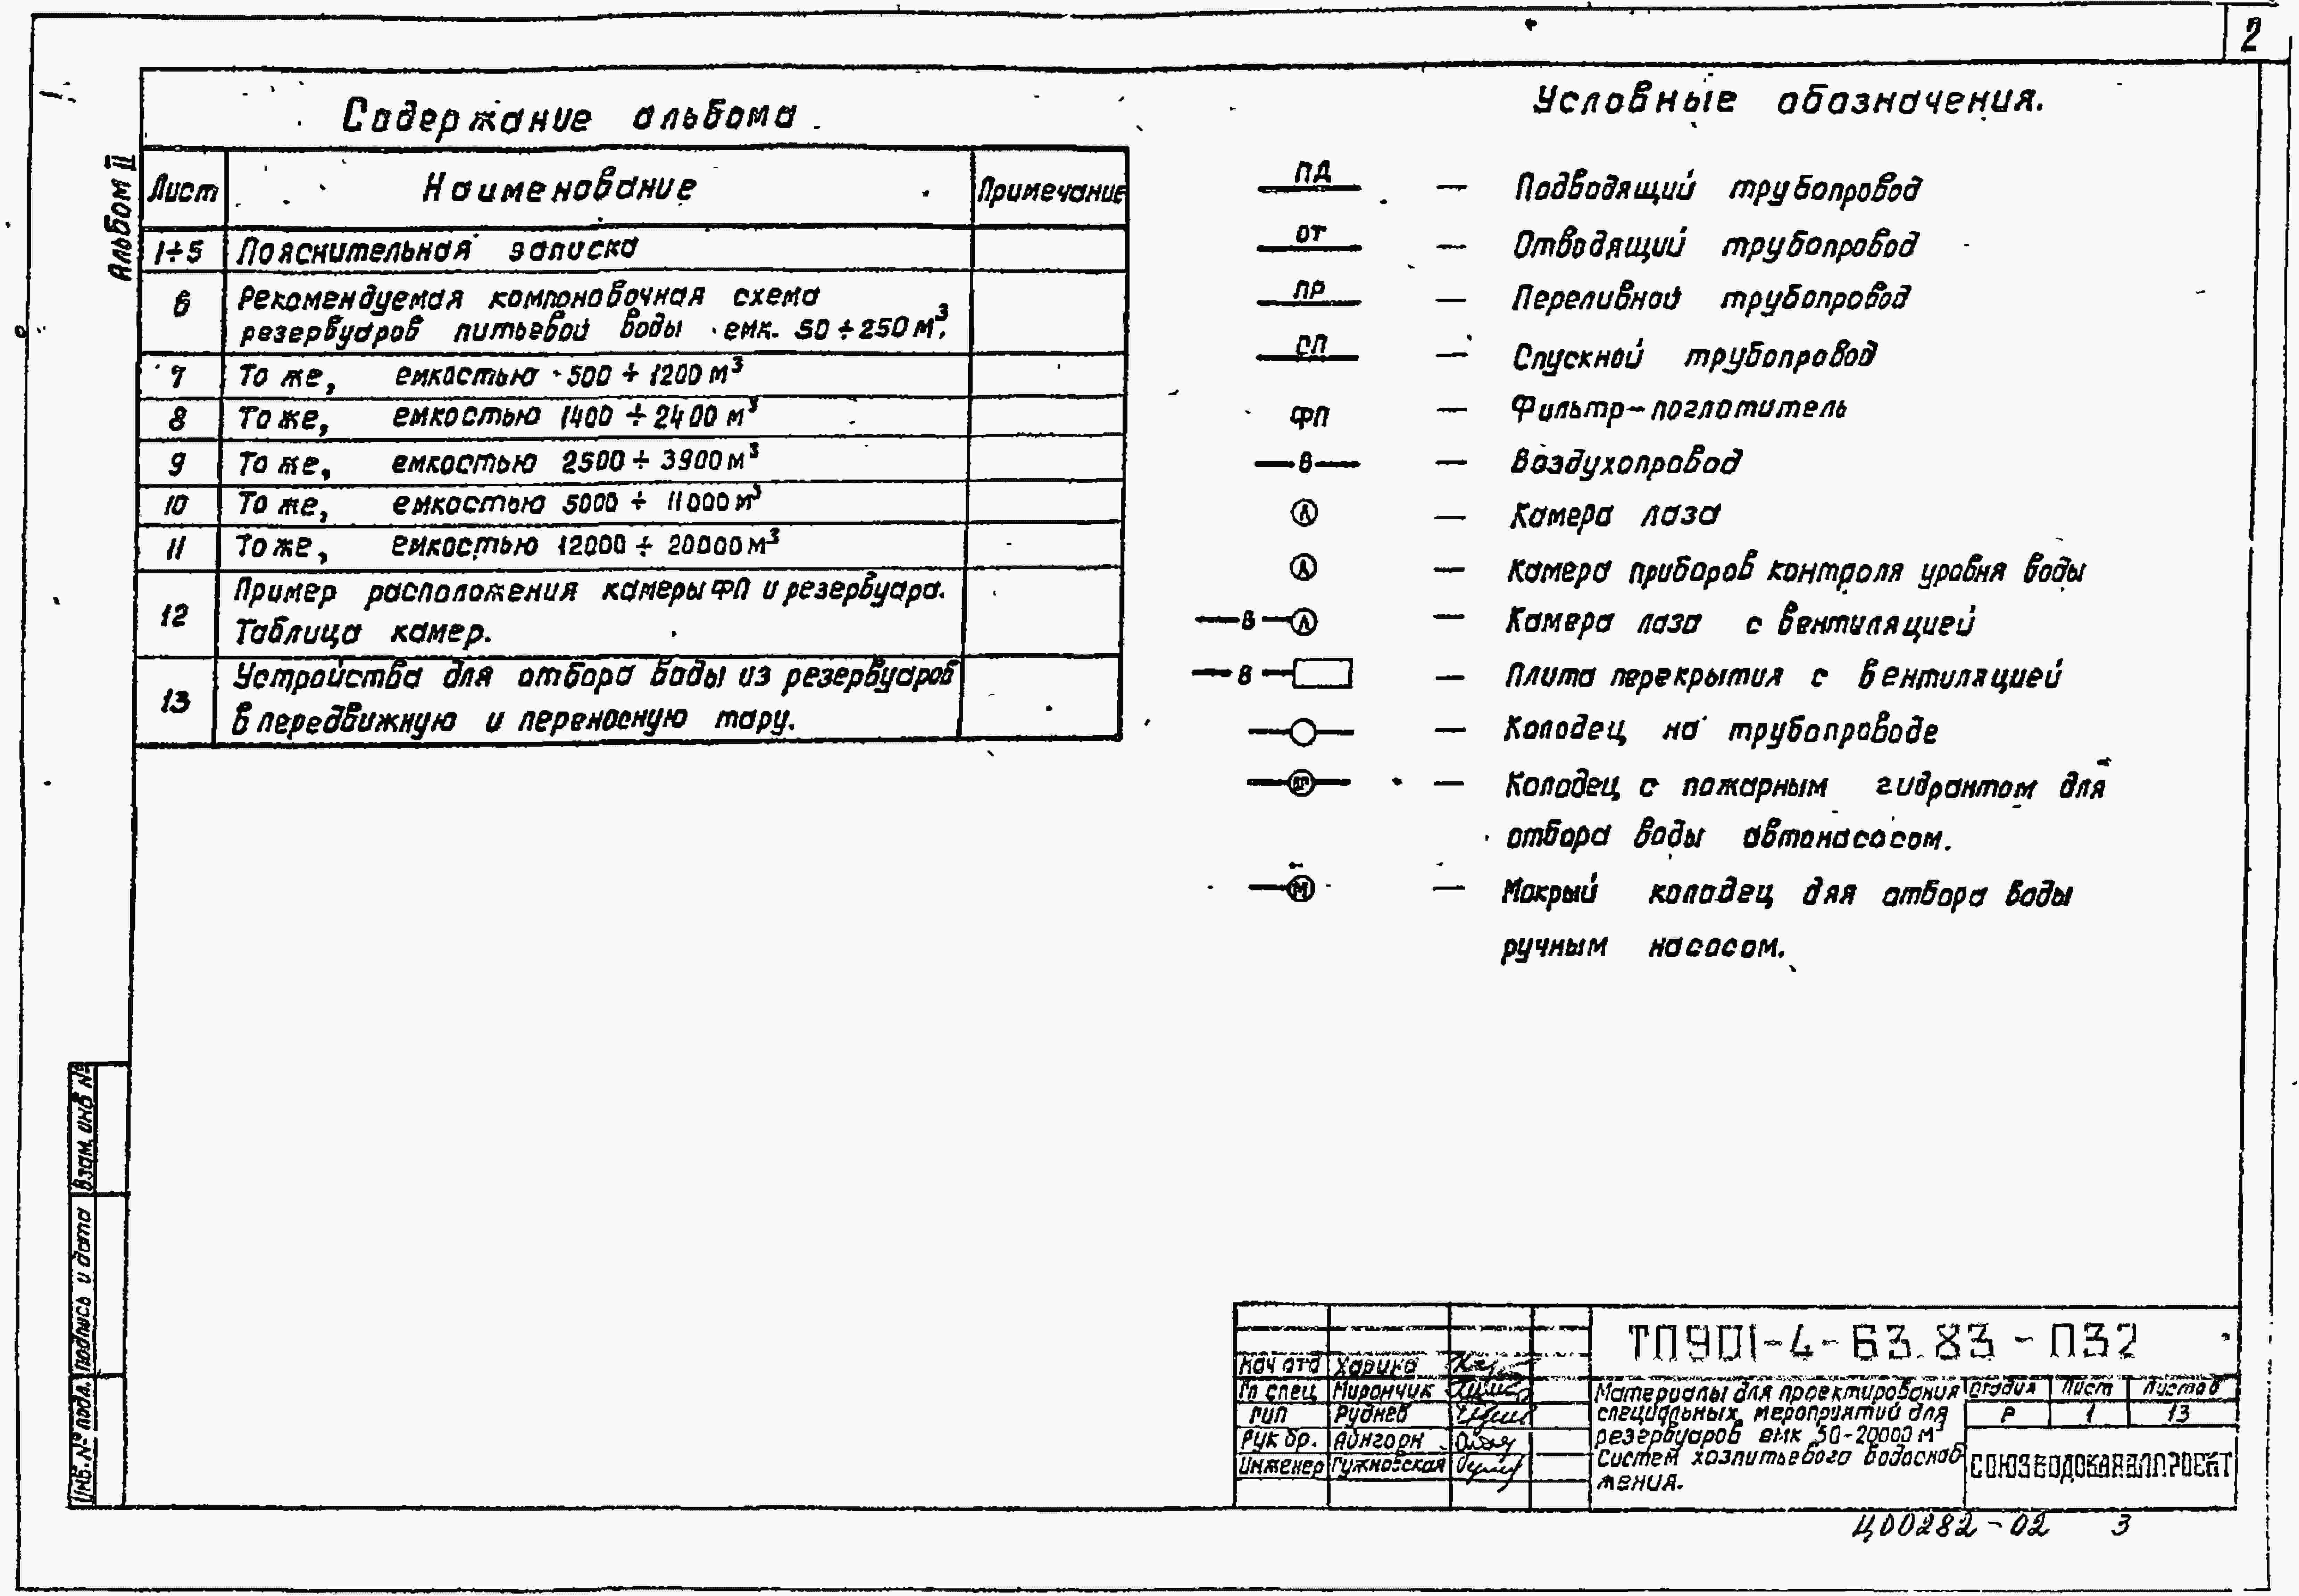 2
Альбом II
Содержание альбома.
Лист Наименование Примечание
1÷5 Пояснительная записка
6 Рекомендуемая компоновочная схема
резервуаров питьевой воды емк. 50÷250 м³.
7 То же, емкостью 500 ÷ 1200 м³
8 То же, емкостью 1400 ÷ 2400 м³
9 То же, емкостью 2500 ÷ 3900 м³
10 То же, емкостью 5000 ÷ 11000 м³
11 То же, емкостью 12000 ÷ 20000 м³
12 Пример расположения камеры ФП и резервуара.
Таблица камер.
13 Устройства для отбора воды из резервуаров
в передвижную и переносную тару.
Условные обозначения.
ПД — Подводящий трубопровод
ОТ — Отводящий трубопровод
ПР — Переливной трубопровод
СП — Спускной трубопровод
ФП — Фильтр-поглотитель
В — Воздухопровод
Л — Камера лаза
— Камера приборов контроля уровня воды
В Л — Камера лаза с вентиляцией
В — Плита перекрытия с вентиляцией
— Колодец на трубопроводе
ПГ — Колодец с пожарным гидрантом для
отбора воды автонасосом.
М — Мокрый колодец для отбора воды
ручным насосом.
Взам. инв №
Подпись и дата
Инв. № подл.
Нач отд Харина
Гл спец Мирончик
ГИП Руднев
Рук бр. Айнгорн
Инженер Гужновская
ТП901-4-63.83-ПЗ2
Материалы для проектирования
специальных мероприятий для
резервуаров емк 50-20000 м³
Систем хозпитьевого водоснаб
жения.
Стадия Лист Листов
Р 1 13
СОЮЗВОДОКАНАЛПРОЕКТ
Ц00282-02 3